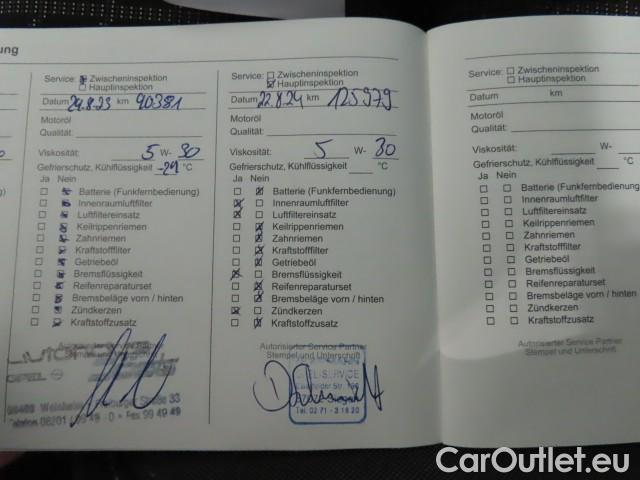 ung
Service: Zwischeninspektion
Hauptinspektion
Datum 29.8.23 km 90381
Motoröl
Qualität:
Viskosität: 5 W- 30
Gefrierschutz, Kühlflüssigkeit -29 °C
Ja Nein
Batterie (Funkfernbedienung)
Innenraumluftfilter
Luftfiltereinsatz
Keilrippenriemen
Zahnriemen
Kraftstofffilter
Getriebeöl
Bremsflüssigkeit
Reifenreparaturset
Bremsbeläge vorn / hinten
Zündkerzen
Kraftstoffzusatz
OPEL
Weinheim Straße 33
Telefon 06201 Fax 99 49 49
Service: Zwischeninspektion
Hauptinspektion
Datum 22.8.24 km 125979
Motoröl
Qualität:
Viskosität: 5 W- 30
Gefrierschutz, Kühlflüssigkeit °C
Ja Nein
Batterie (Funkfernbedienung)
Innenraumluftfilter
Luftfiltereinsatz
Keilrippenriemen
Zahnriemen
Kraftstofffilter
Getriebeöl
Bremsflüssigkeit
Reifenreparaturset
Bremsbeläge vorn / hinten
Zündkerzen
Kraftstoffzusatz
Autorisierter Service Partner
Stempel und Unterschrift
SERVICE
Tel. 02 71 - 3 18 20
Service: Zwischeninspektion
Hauptinspektion
Datum km
Motoröl
Qualität:
Viskosität: W-
Gefrierschutz, Kühlflüssigkeit °C
Ja Nein
Batterie (Funkfernbedienung)
Innenraumluftfilter
Luftfiltereinsatz
Keilrippenriemen
Zahnriemen
Kraftstofffilter
Getriebeöl
Bremsflüssigkeit
Reifenreparaturset
Bremsbeläge vorn / hinten
Zündkerzen
Kraftstoffzusatz
Autorisierter Service Partner
Stempel und Unterschrift
CarOutlet.eu